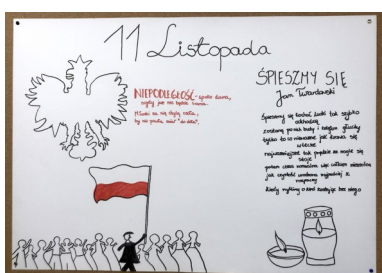 11 Listopada
NIEPODLEGŁOŚĆ
nigdy już nie będzie
się
by nie
ŚPIESZMY SIĘ
Jan Twardowski
Śpieszmy się kochać ludzi tak szybko
odchodzą
zostaną po nich buty i telefon głuchy
tylko to co nieważne jak krowa się
wlecze
najważniejsze tak prędkie że nagle się
staje
potem cisza normalna więc całkiem nieznośna
jak czystość urodzona najprościej z
rozpaczy
kiedy myślimy o kimś zostając bez niego